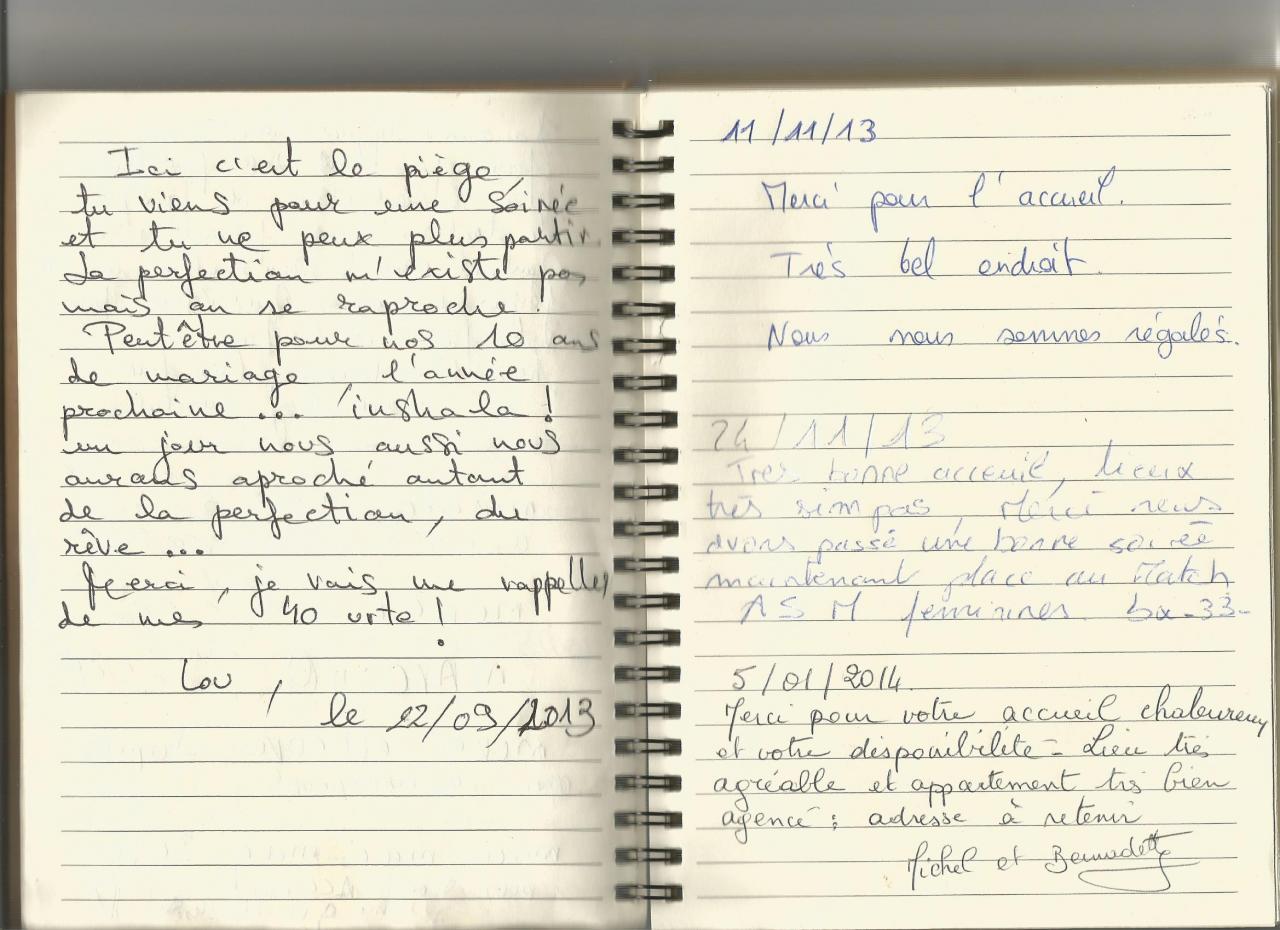 Ici c'est le piège,
tu viens pour une soirée
et tu ne peux plus partir.
La perfection n'existe pas
mais on se raproche !
Peut être pour nos 10 ans
de mariage, l'année
prochaine ... inshala !
un jour nous aussi nous
aurons aproché autant
de la perfection, du
rêve ...
Merci, je vais me rappeller
de mes 40 urte !
Lou,
le 22/09/2013
11/11/13
Merci pour l'accueil.
Très bel endroit.
Nous nous sommes régalés.
24/11/13
Tres bonne acceuil, lieux
très simpas, Merci nous
avons passé une bonne soirée
maintenant place au Match
ASM feminines bx-33-
5/01/2014.
Merci pour votre accueil chaleureux
et votre disponibilité - Lieu très
agréable et appartement très bien
agencé : adresse à retenir
Michel et Bernadette